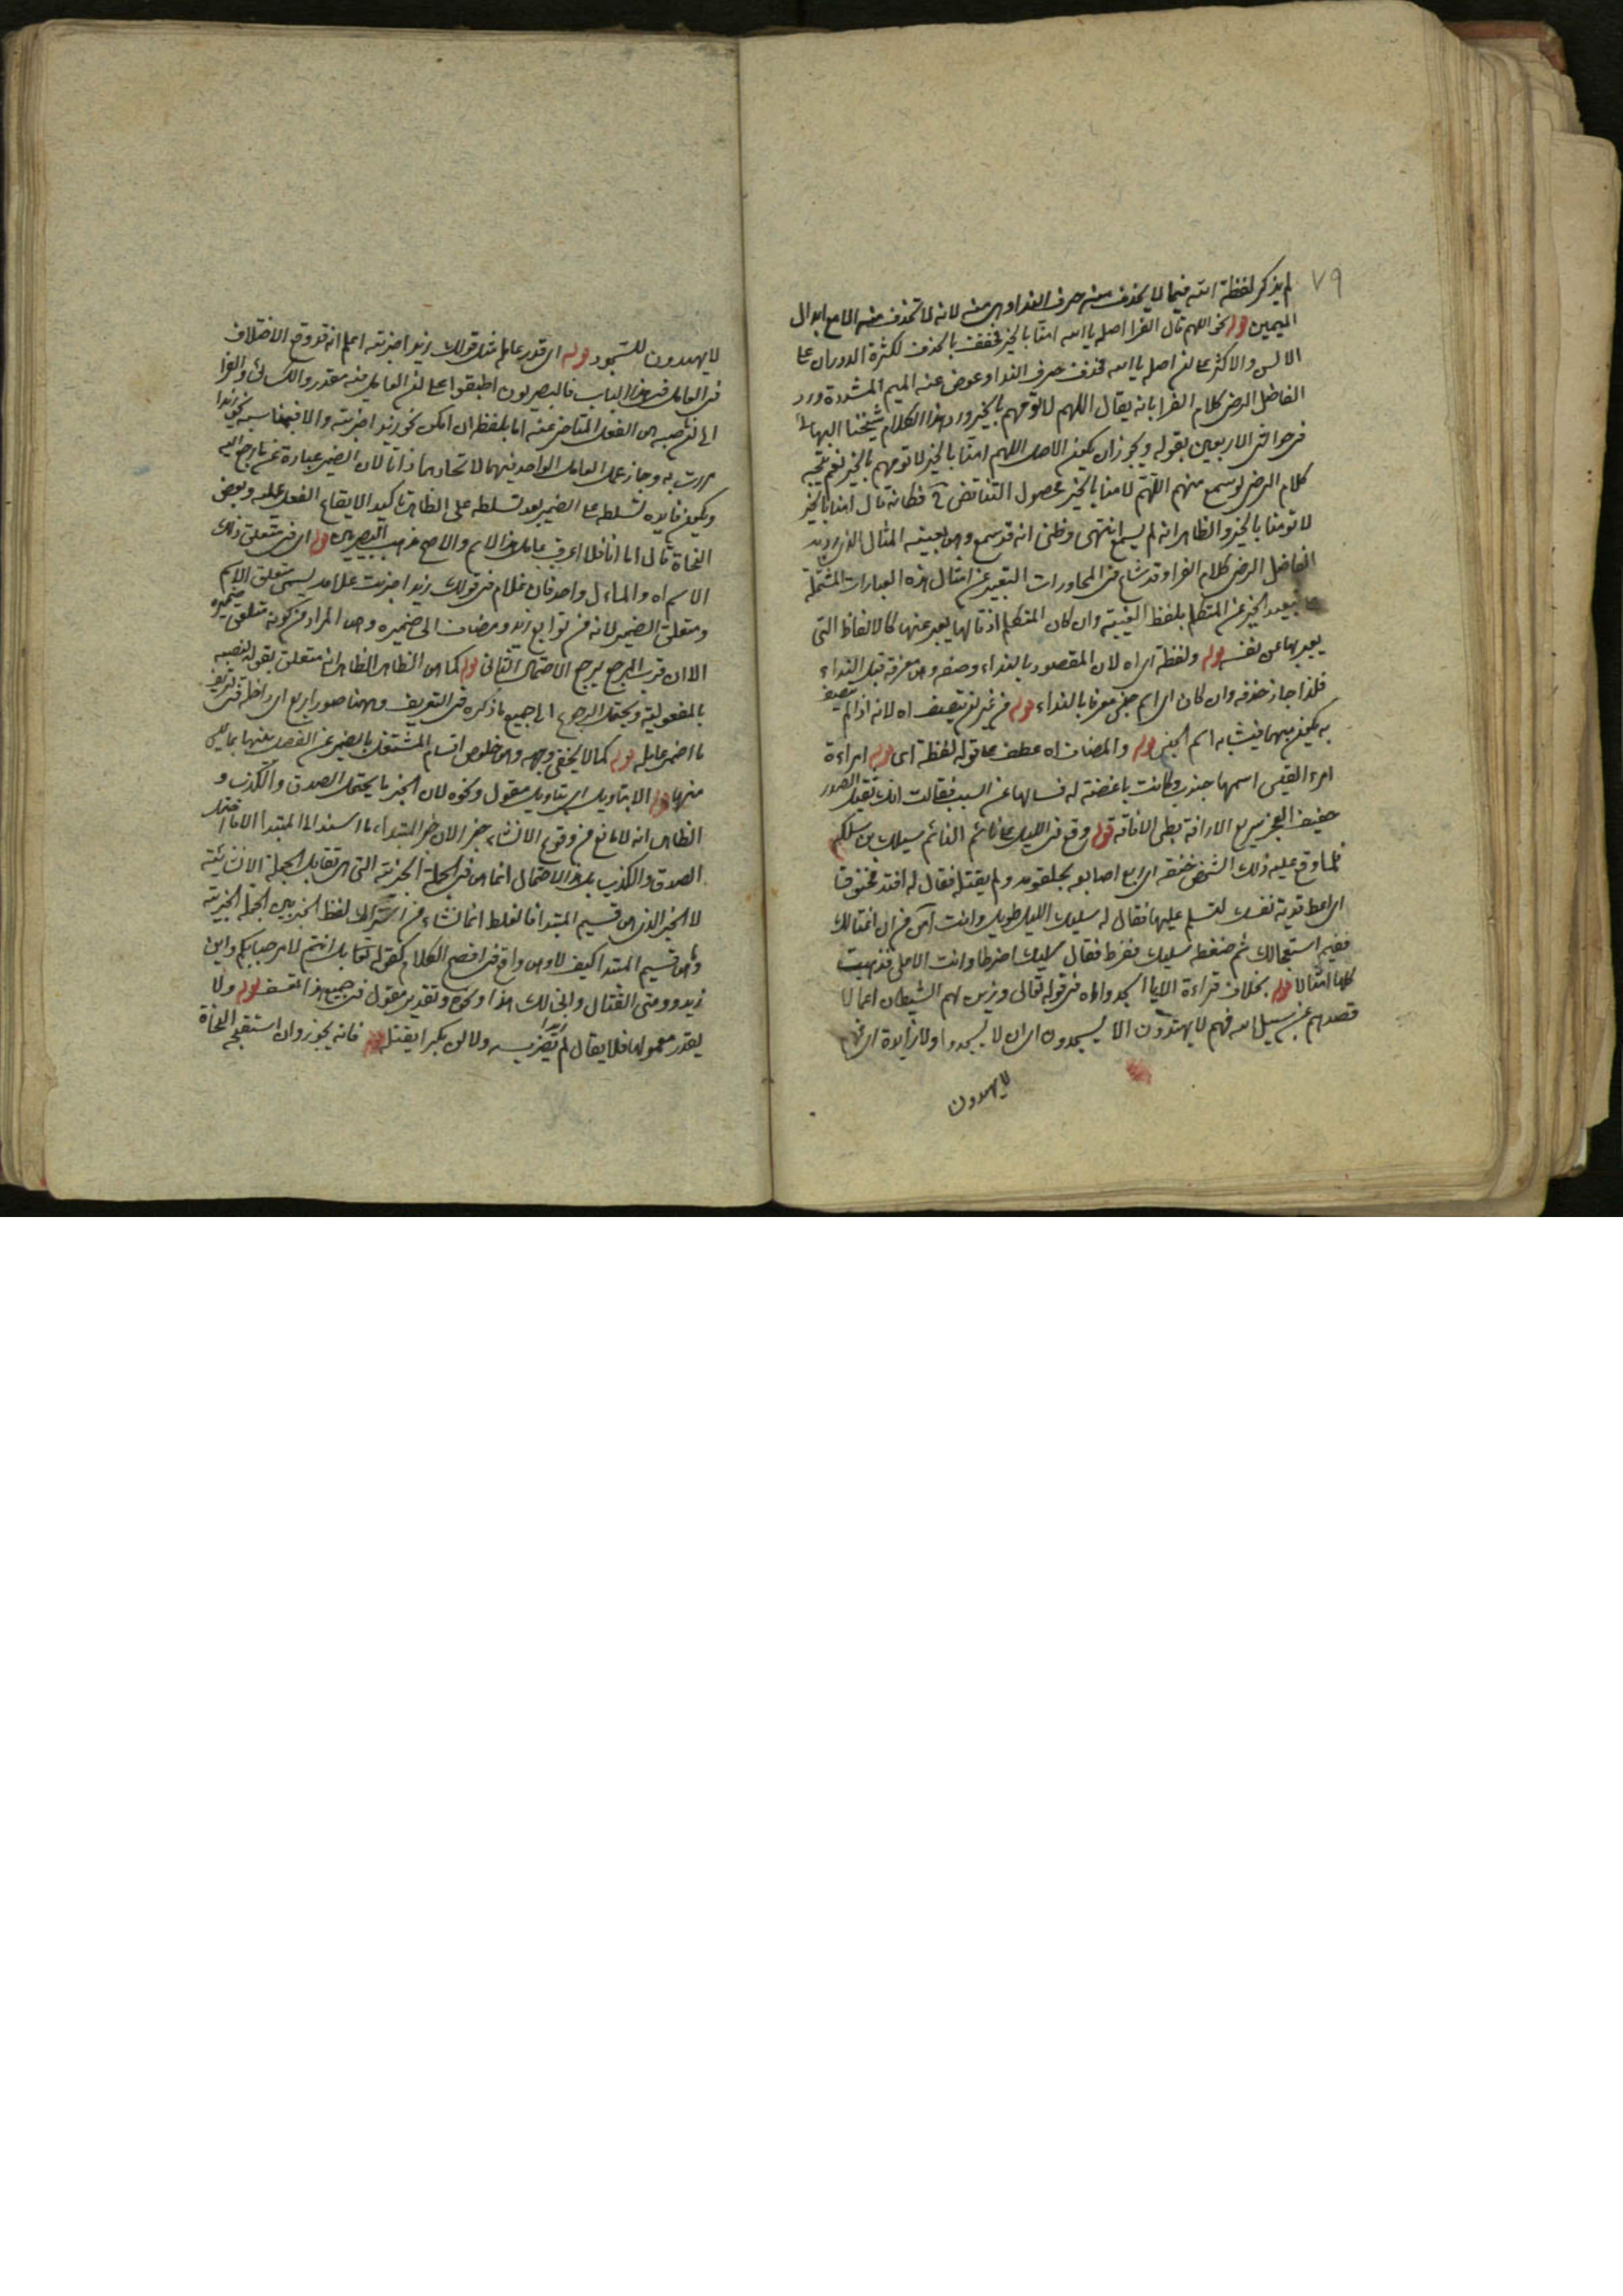 ٧٩
لم يذكر لفظة الله فيما لا يحذف منه حرف النداء وهى منه لانه لا تحذف منه الا مع ابدال
الميمين قوله نحو اللهم قال الفرا اصله يا الله امنا بالخير فخفف بالحذف لكثرة الدوران على
الالسن والاكثر على ان اصله يا الله فحذف حرف الندا وعوض عنه الميم المشددة ورد
الفاضل الرضى كلام الفرا بانه يقال اللهم لا تؤمهم بالخير ورد هذا الكلام شيخنا البهائى
فى حواشى الاربعين بقوله ويجوز ان يكون الاصل اللهم امنا بالخير لا تؤمهم بالخير نعم يتجه
كلام الرضى لو سمع منهم اللهم لا امنا بالخير لحصول التناقض فكانه قال امنا بالخير
لا تومنا بالخير والظاهر انه لم يسمع انتهى وظنى انه قد سمع وهى بعينه المثال الذى اورده
الفاضل الرضى كلام الفرا وقد شاع فى المحاورات التعبير عن امثال هذه العبارات المشتملة
تبعيد الخير عن المتكلم بلفظ الغيبة وان كان المتكلم اذ قالها يعبر عنها كالالفاظ التى
يعبر بها عن نفسه قوله ولفظة اى اه لان المقصود بالنداء وصفه وهى معرفة قبل النداء
فلذا جاز حذفه وان كان اى اسم جنس معرفا بالنداء قوله من غير ان يتصف اه لانه اذا لم يتصف
به يكون مبهما فيشابه اسم الجنس قوله والمضاف اه عطف على قوله لفظة اى قوله امراءة
امرء القيس اسمها جندب وكانت باغضة له فسالها عن السبب فقالت انك ثقيل الصدر
خفيف العجز سريع الاراقة بطى الافاقة قوله وقع فى الليل على نائم النائم سليك بن سلكة
فلما وقع عليه ذلك الشخص خنقه اى اربع اصابعه بحلقومه ولم يقتله فقال له افتد مخنوق
اى اعط فدية نفسك لتسلم عليها فقال له سليك الليل طويل وانت آمن من ان اغتالك
ففيم استعجالك ثم ضغطه سليك فضرط فقال سليك اضرطا وانت الاعلى فذهبت
كلها امثالا قوله بخلاف قراءة الا يا اسجدوا اه فى قوله تعالى وزين لهم الشيطان اعمالا
فصدهم عن سبيل الله فهم لا يهتدون الا يسجدون اى ان لا يسجدوا ولا زايدة اى فهم
لا يهتدون
لا يهتدون للسجود قوله اى قدر عامله مثل قولك زيدا ضربته اعلم انه قد وقع الاختلاف
فى العامل فى هذا الباب فالبصريون اطبقوا على ان العامل فيه مقدر والكسائى والفرا
الى ان ناصبه هى الفعل المتاخر عنه اما بلفظه ان امكن نحو زيد اضربته والا فبمناسبه نحو زيدا
مررت به وجاز عمل العامل الواحد فيهما لاتحادهما ذاتا لان الضمير عبارة عن ما رجع اليه
ويكون فايدة تسلطه على الضمير بعد تسلطه على الظاهر تاكيد الايقاع الفعل عليه وبعض
النحاة قال اما انا فلا اعرف عامل هذا الاسم والاصح مذهب البصريين قوله اى فى متعلق ذلك
الاسم اه والمال واحد فان غلام فى قولك زيدا ضربت غلامه يسمى متعلق الاسم
ومتعلق الضمير لانه من توابع زيد ومضاف الى ضميره وهى المراد من كونه متعلق ضميره
الا ان قرب المرجع يرجح الاحتمال الثانى قوله كما هى الظاهر الظاهر انه متعلق بقوله لنصبه
بالمفعولية ويحتمل الرجوع الى جميع ما ذكره فى التعريف وههنا صور اربع اى داخلة فى تعريف
ما اضمر عامله قوله كما لا يخفى وجهه وهى خلوص اقسام المشتغل بالضمير عن الفصل بينها بما ليس
منها قوله الا بتاويل اى بتاويل مقول ونحوه لان الخبر ما يحتمل الصدق والكذب و
الظاهر انه لا مانع من وقوع الانشاء خبر الان خبر المبتداء ما اسند الى المبتدا الا ما احتمل
الصدق والكذب بل هذا الاحتمال انما هى فى الجملة الخبرية التى هى تقابل الجملة الانشائية
لا الخبر الذى هى قسيم المبتدا فالغلط انما نشاء من اشتراك لفظ الخبر بين الجملة الخبرية
وما هى قسيم المبتدا كيف لا وهى واقع فى افصح الكلام كقوله تعالى بل انتم لا مرحبا بكم واين
زيد ومتى القتال والى ذلك هذا ونحوه وتقدير مقول فى جميع هذا تعسف قوله ولا
يقدر معمولها فلا يقال لم زيدا تضربه ولا لن بكرا يقتله قوله فانه يجوز وان استقبحه النحاة